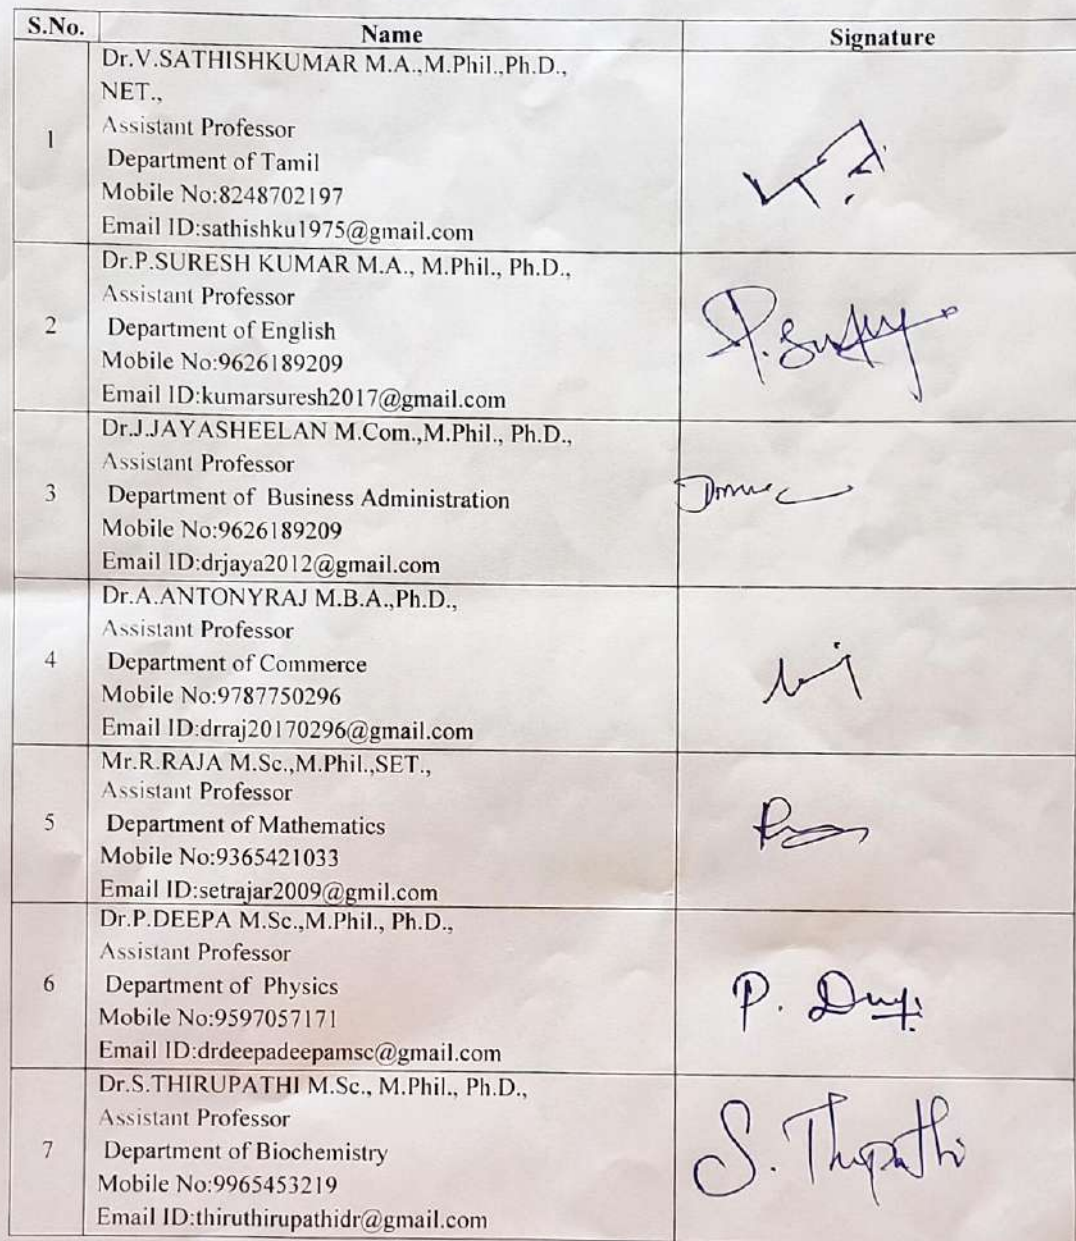 S.No. Name Signature
Dr.V.SATHISHKUMAR M.A.,M.Phil.,Ph.D.,
NET.,
Assistant Professor
1
Department of Tamil
Mobile No:8248702197
Email ID:sathishku1975@gmail.com
Dr.P.SURESH KUMAR M.A., M.Phil., Ph.D.,
Assistant Professor
2 Department of English
Mobile No:9626189209
Email ID:kumarsuresh2017@gmail.com
Dr.J.JAYASHEELAN M.Com.,M.Phil., Ph.D.,
Assistant Professor
3 Department of Business Administration
Mobile No:9626189209
Email ID:drjaya2012@gmail.com
Dr.A.ANTONYRAJ M.B.A.,Ph.D.,
Assistant Professor
4 Department of Commerce
Mobile No:9787750296
Email ID:drraj20170296@gmail.com
Mr.R.RAJA M.Sc.,M.Phil.,SET.,
Assistant Professor
5 Department of Mathematics
Mobile No:9365421033
Email ID:setrajar2009@gmil.com
Dr.P.DEEPA M.Sc.,M.Phil., Ph.D.,
Assistant Professor
6 Department of Physics P.
Mobile No:9597057171
Email ID:drdeepadeepamsc@gmail.com
Dr.S.THIRUPATHI M.Sc., M.Phil., Ph.D.,
Assistant Professor
7 Department of Biochemistry S.
Mobile No:9965453219
Email ID:thiruthirupathidr@gmail.com